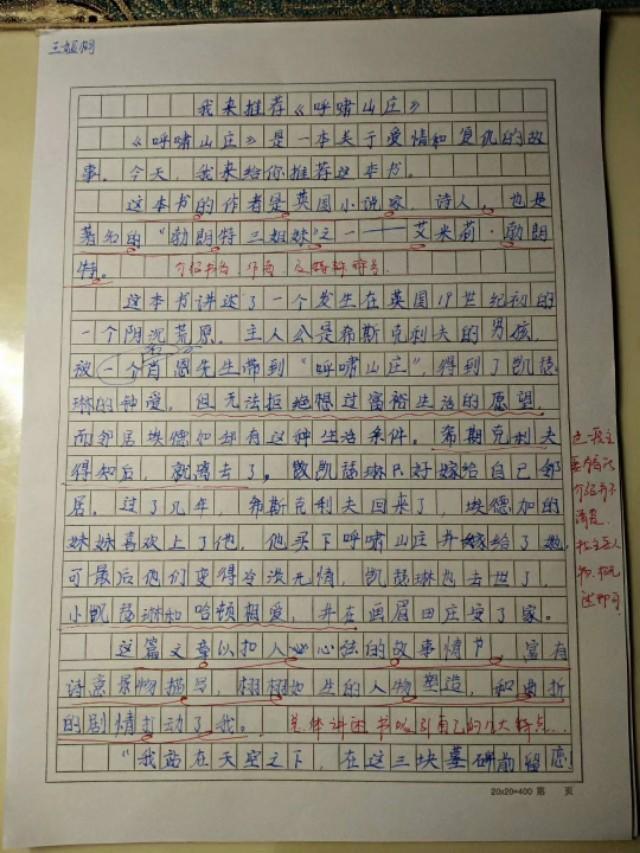 我来推荐《呼啸山庄》
《呼啸山庄》是一本关于爱情和复仇的故
事。今天，我来给你推荐这本书。
这本书的作者是英国小说家，诗人，也是
著名的“勃朗特三姐妹”之一——艾米莉·勃朗
特。
这本书讲述了一个发生在英国19世纪初的
一个阴沉荒原。主人公是希斯克利夫的男孩，
被一个肖恩先生带到“呼啸山庄”，得到了凯瑟
琳的钟爱，但无法拒绝想过富裕生活的愿望，
而邻居埃德加却有这种生活条件。希斯克利夫
得知后，就离去了，凯瑟琳只好嫁给自己邻
居。过了几年，希斯克利夫回来了，埃德加的
妹妹喜欢上了他。他买下呼啸山庄并嫁给了她，
可最后他们变得冷漠无情，凯瑟琳也去世了，
小凯瑟琳和哈顿相爱，并在画眉田庄安了家。
这篇文章以扣人心弦的故事情节，富有
诗意景物描写，栩栩如生的人物塑造，和曲折
的剧情打动了我。
总体讲出书吸引自己的几大特点
“我站在天空之下，在这三块墓碑前留恋！
20×20=400 第 页